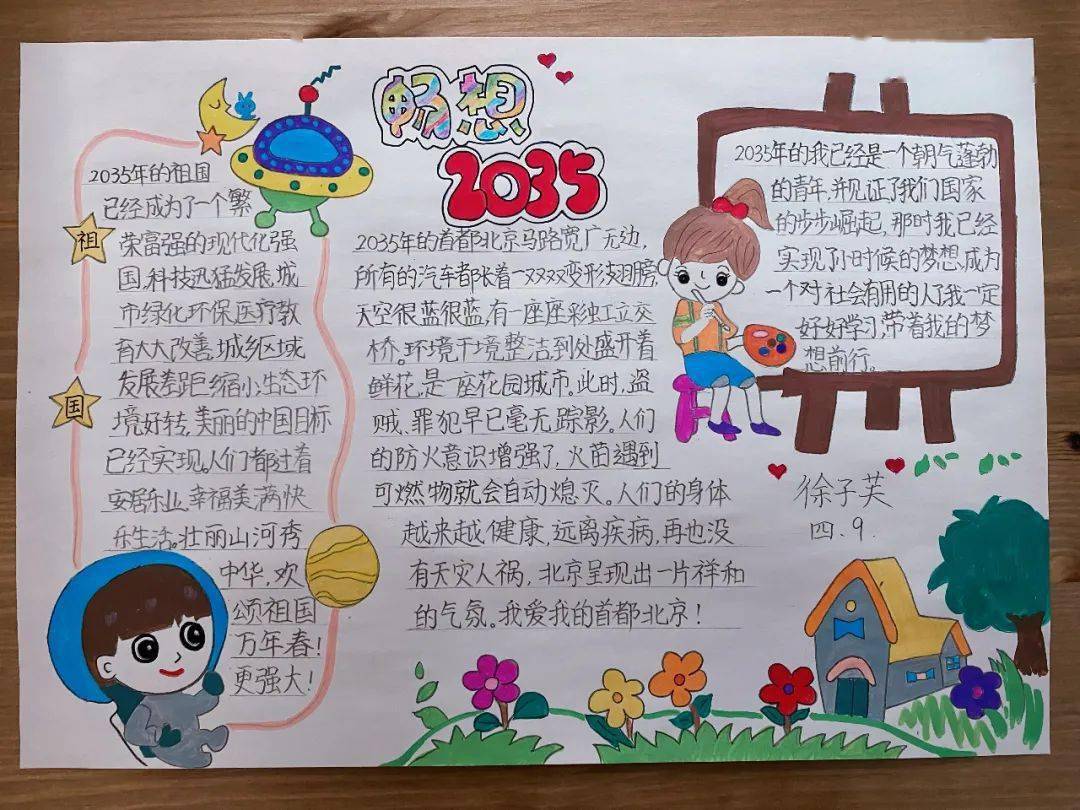 畅想
2035
2035年的祖国
已经成为了一个繁
荣富强的现代化强
国,科技迅猛发展,城
市绿化环保,医疗教
育大大改善,城乡区域
发展差距缩小,生态环
境好转,美丽的中国目标
已经实现。人们都过着
安居乐业,幸福美满快
乐生活。壮丽山河秀
中华,欢
颂祖国
万年春!
更强大!
祖
国
2035年的首都北京马路宽广无边,
所有的汽车都长着一双双变形翅膀,
天空很蓝很蓝,有一座座彩虹立交
桥。环境干境整洁到处盛开着
鲜花,是一座花园城市。此时,盗
贼、罪犯早已毫无踪影。人们
的防火意识增强了,火苗遇到
可燃物就会自动熄灭。人们的身体
越来越健康,远离疾病,再也没
有天灾人祸,北京呈现出一片祥和
的气氛。我爱我的首都北京!
2035年的我已经是一个朝气蓬勃
的青年,并见证了我们国家
的步步崛起,那时我已经
实现了小时候的梦想,成为
一个对社会有用的人了我一定
好好学习,带着我的梦
想前行。
徐子芙
四.9.